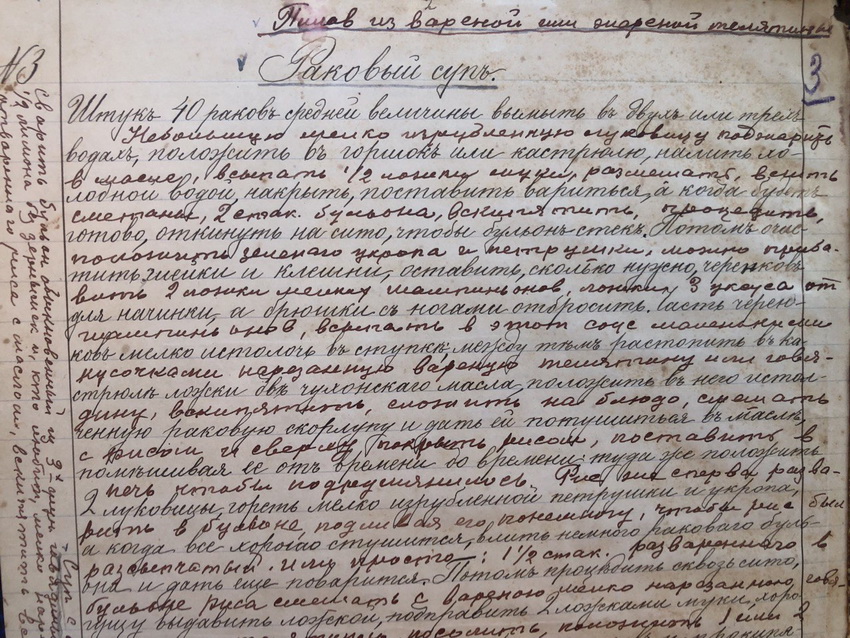 Пилав из вареной или жареной телятины
Раковый супъ.
3
Штукъ 40 раковъ средней величины вымыть въ двухъ или трехъ
Небольшую мелко изрубленную луковицу поджарить
водахъ, положить въ горшокъ или кастрюлю, налить хо-
в масле, всыпать 1/2 ложки муки, размешать, влить
лодной водой, накрыть, поставить вариться, а когда будетъ
сметаны, 2 стак. бульона, вскипятить, процедить,
готово, откинуть на сито, чтобы бульонъ стекъ. Потомъ очис-
положить зеленого укропа и петрушки, можно приба-
тить шейки и клешни, оставить, сколько нужно, черепковъ
вить 2 ложки мелких шампиньонов, ложки 3 уксуса от
для начинки, а брюшки съ ногами отбросить. Часть череп-
шампиньонов, всыпать в этот соус маленькими
ковъ мелко истолочь въ ступкѣ, между тѣмъ растопить въ ка-
кусочками нарезанную вареную телятину или говя-
стрюлѣ ложки двѣ чухонскаго масла, положить въ него истол-
дину, вскипятить, сложить на блюдо, смешать
ченную раковую скорлупу и дать ей потушиться въ маслѣ,
с рисом и сверху покрыть рисом, поставить в
помѣшивая ее отъ времени до времени; туда же положить
печь чтобы подрумянилось. Рис же сперва разва-
2 луковицы, горсть мелко изрубленной петрушки и укропа,
рить в бульоне, подливая его понемногу, чтобы рис был
а когда все хорошо стушится, влить немного раковаго буль-
рассыпчатый. Или просто: 1 1/2 стак. разваренного в
она и дать еще повариться. Потомъ процѣдить сквозь сито,
бульоне риса смешать с вареною мелко нарезанною говя-
гущу выдавить ложкой, подправить 2 ложками муки, хоро-
посолить, положить 1 или 2
№3
Сварить бульон обыкновенный из 3х фун. говядины
1/2 лимона без зернышек и, кто любит, мелко наре
отваренного риса с маслом, вскипятить все
Суп с